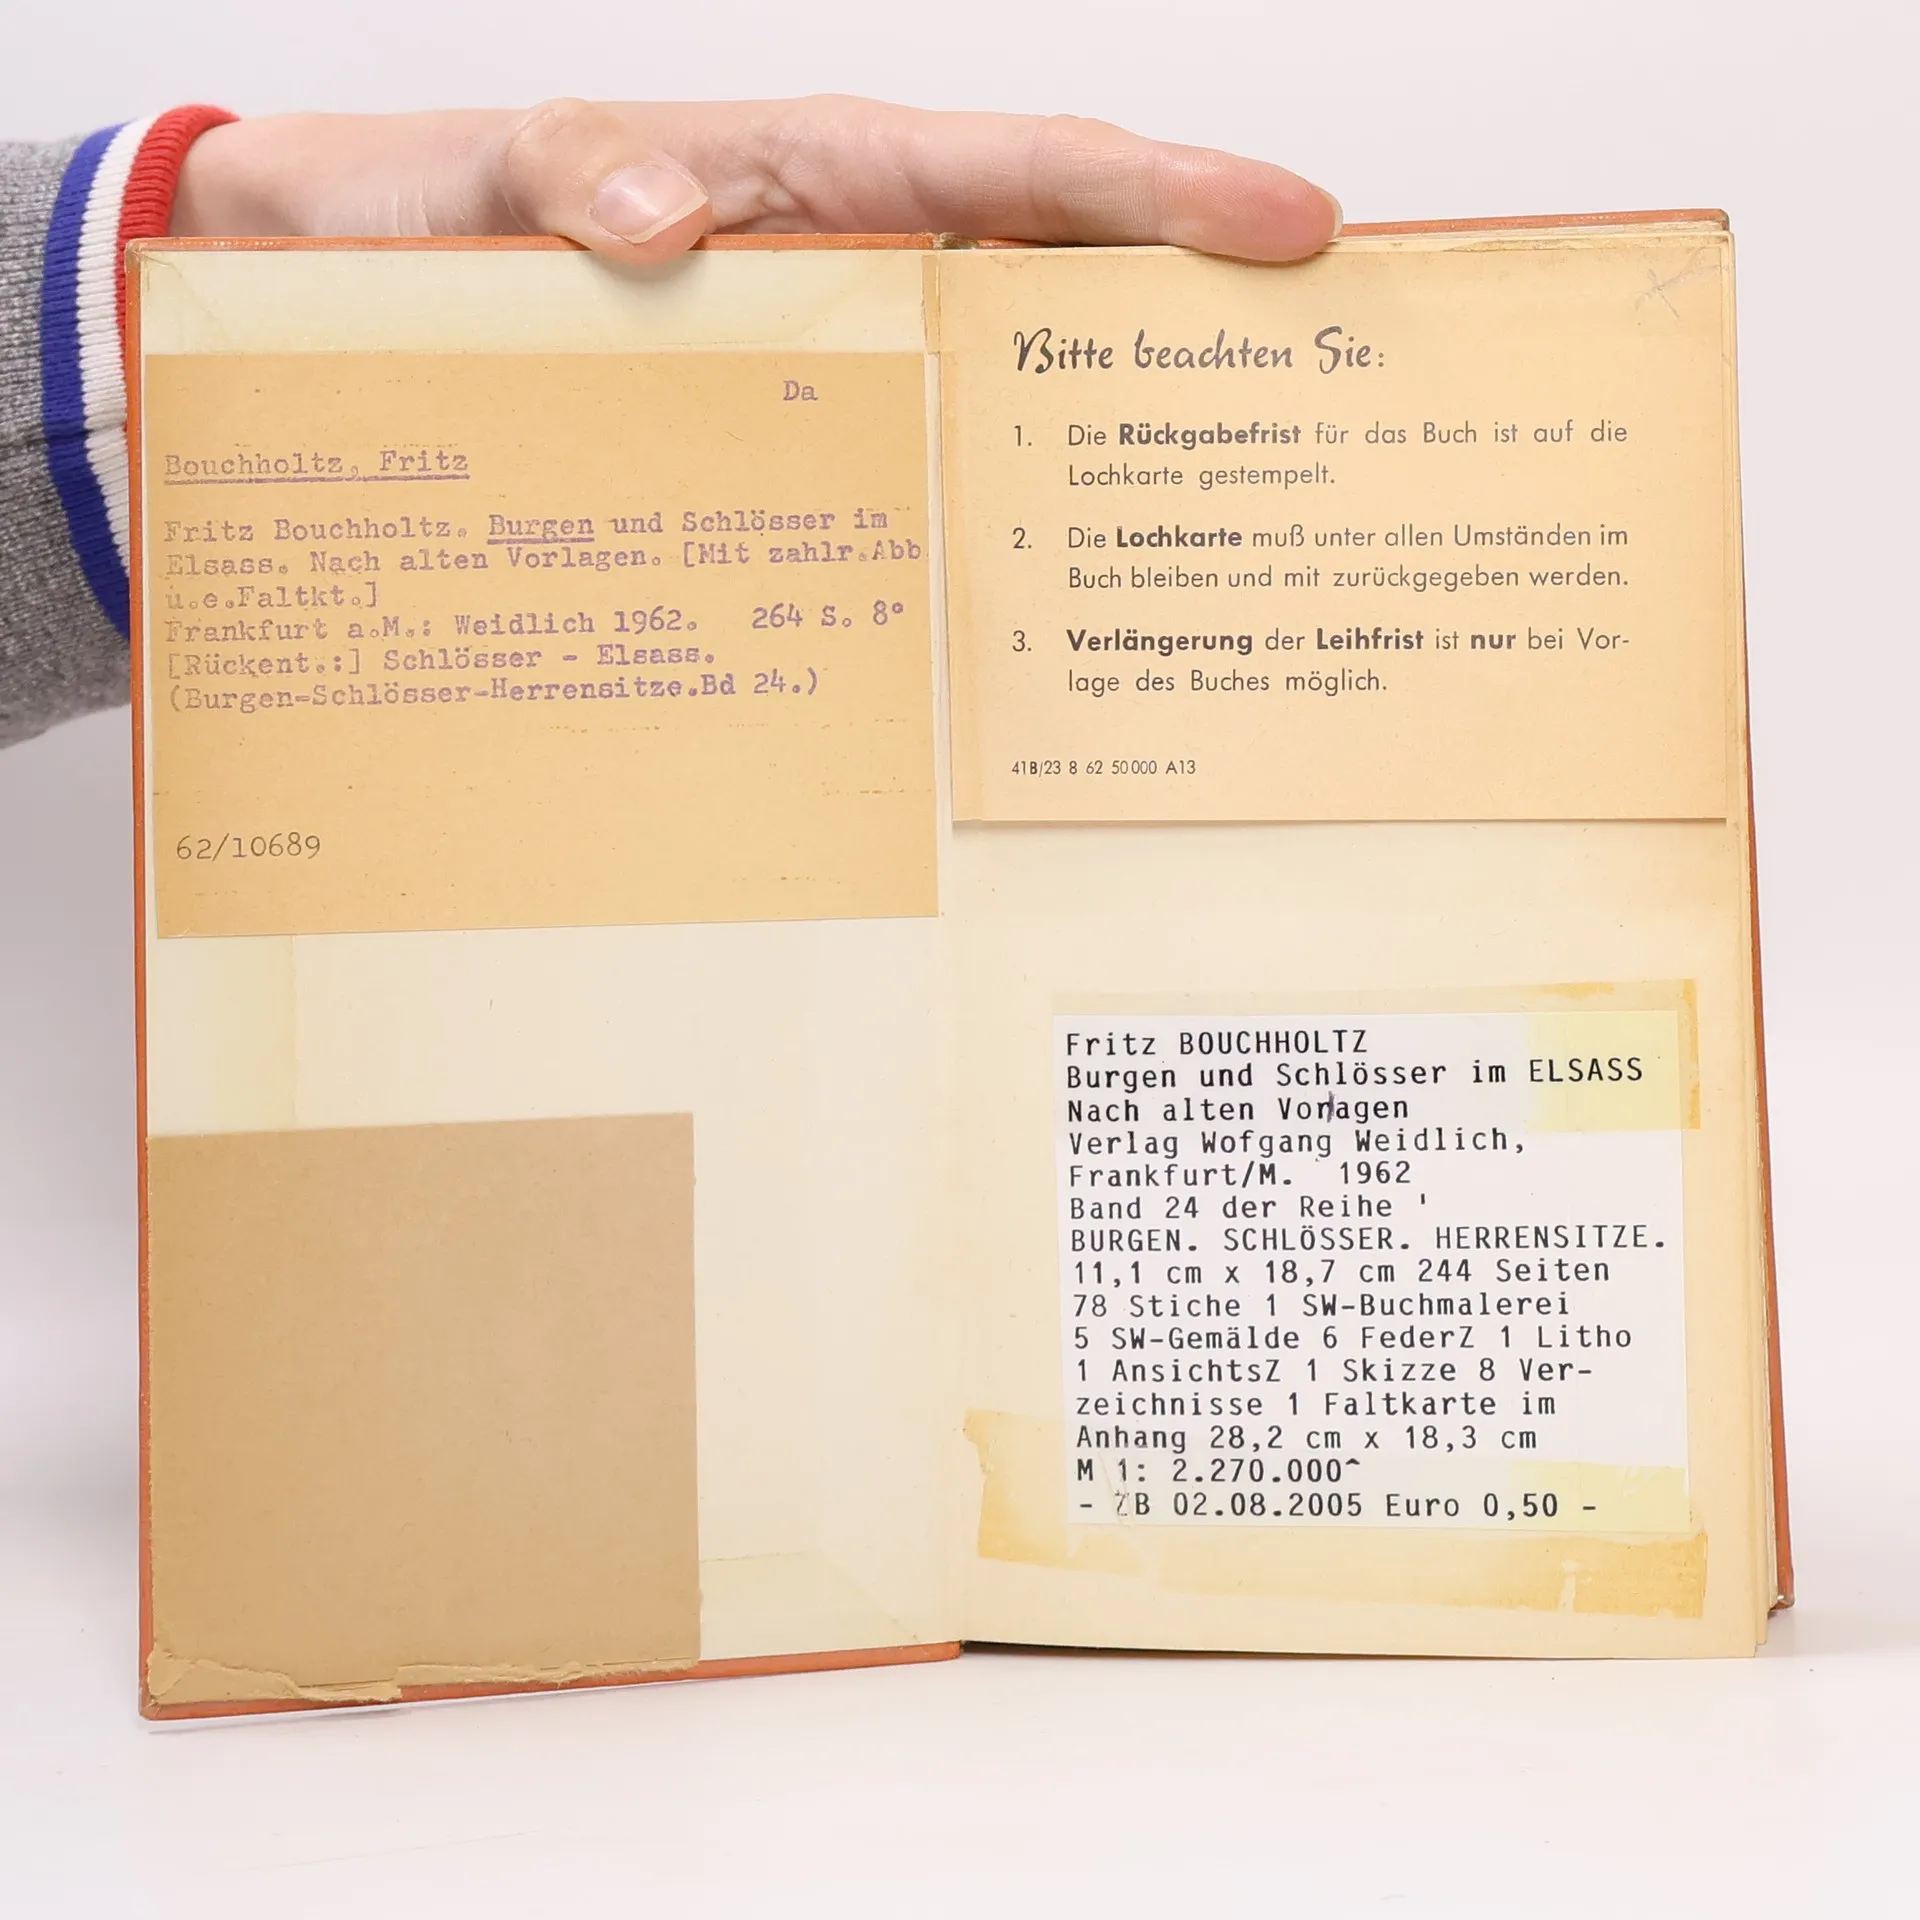 Da
Bouchholtz, Fritz
Fritz Bouchholtz. Burgen und Schlösser im
Elsass. Nach alten Vorlagen. [Mit zahlr.Abb
u.e.Faltkt.]
Frankfurt a.M.: Weidlich 1962. 264 S. 8°
[Rückent.:] Schlösser - Elsass.
(Burgen-Schlösser-Herrensitze.Bd 24.)
62/10689
Bitte beachten Sie:
1. Die Rückgabefrist für das Buch ist auf die
Lochkarte gestempelt.
2. Die Lochkarte muß unter allen Umständen im
Buch bleiben und mit zurückgegeben werden.
3. Verlängerung der Leihfrist ist nur bei Vor-
lage des Buches möglich.
41B/23 8 62 50000 A13
Fritz BOUCHHOLTZ
Burgen und Schlösser im ELSASS
Nach alten Vorlagen
Verlag Wofgang Weidlich,
Frankfurt/M. 1962
Band 24 der Reihe '
BURGEN. SCHLÖSSER. HERRENSITZE.
11,1 cm x 18,7 cm 244 Seiten
78 Stiche 1 SW-Buchmalerei
5 SW-Gemälde 6 FederZ 1 Litho
1 AnsichtsZ 1 Skizze 8 Ver-
zeichnisse 1 Faltkarte im
Anhang 28,2 cm x 18,3 cm
M 1: 2.270.000^
- ZB 02.08.2005 Euro 0,50 -